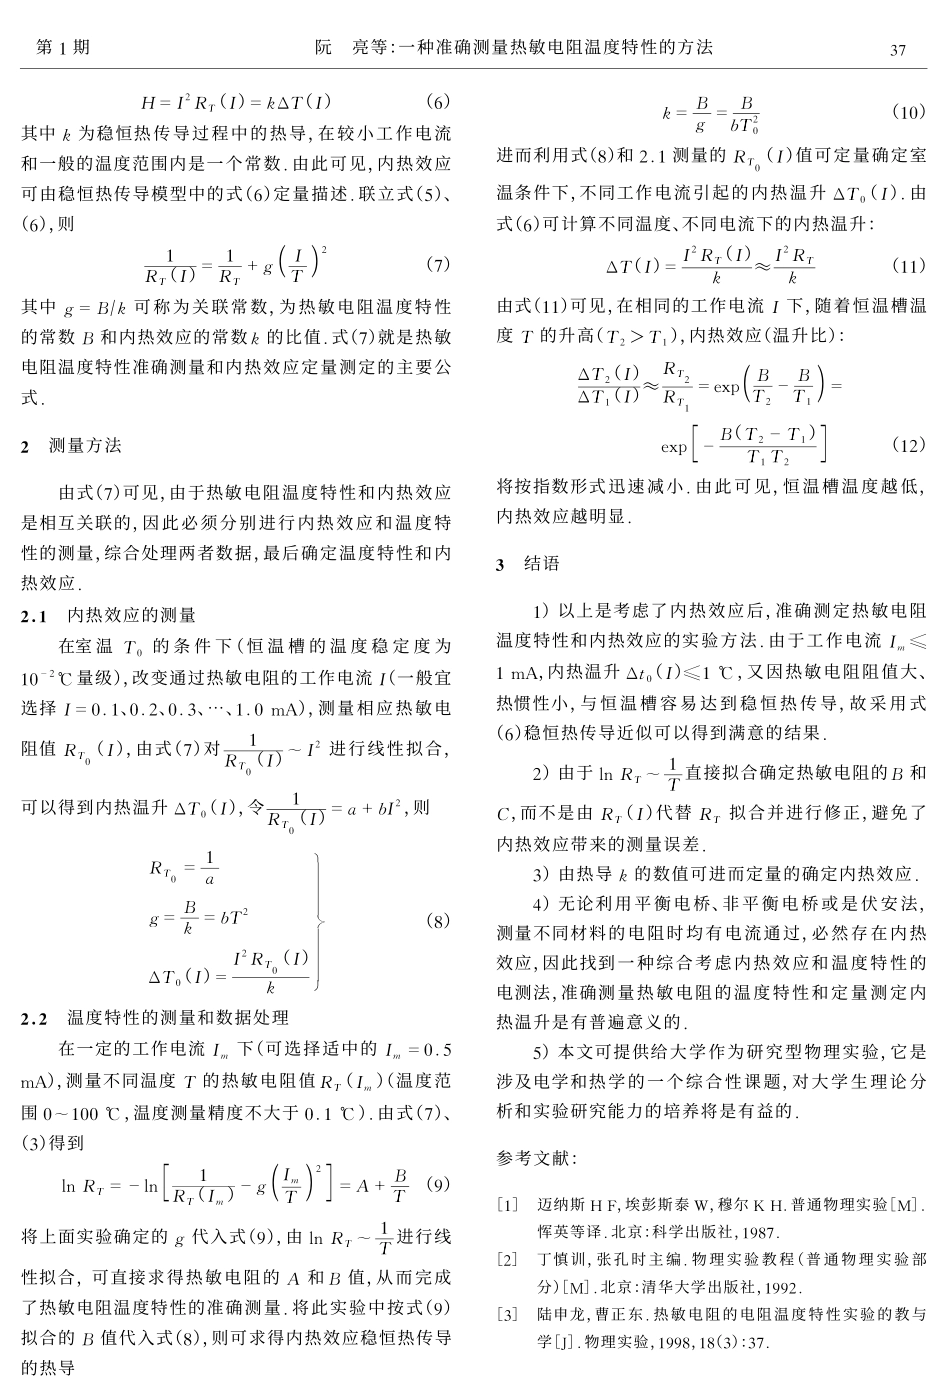 第 1 期 阮　亮等:一种准确测量热敏电阻温度特性的方法 37
H = I² R_T (I) = kΔT(I) (6)
其中 k 为稳恒热传导过程中的热导,在较小工作电流
和一般的温度范围内是一个常数.由此可见,内热效应
可由稳恒热传导模型中的式(6)定量描述.联立式(5)、
(6),则
1/R_T(I) = 1/R_T + g(I/T)² (7)
其中 g = B/k 可称为关联常数,为热敏电阻温度特性
的常数 B 和内热效应的常数 k 的比值.式(7)就是热敏
电阻温度特性准确测量和内热效应定量测定的主要公
式.
2　测量方法
由式(7)可见,由于热敏电阻温度特性和内热效应
是相互关联的,因此必须分别进行内热效应和温度特
性的测量,综合处理两者数据,最后确定温度特性和内
热效应.
2.1　内热效应的测量
在室温 T₀ 的条件下(恒温槽的温度稳定度为
10⁻²℃量级),改变通过热敏电阻的工作电流 I(一般宜
选择 I = 0.1、0.2、0.3、…、1.0 mA),测量相应热敏电
阻值 R_T₀ (I),由式(7)对 1/R_T₀(I) ~ I² 进行线性拟合,
可以得到内热温升 ΔT₀(I),令 1/R_T₀(I) = a + bI²,则
R_T₀ = 1/a
g = B/k = bT² (8)
ΔT₀(I) = I² R_T₀ (I)/k
2.2　温度特性的测量和数据处理
在一定的工作电流 I_m 下(可选择适中的 I_m = 0.5
mA),测量不同温度 T 的热敏电阻值 R_T (I_m)(温度范
围 0~100 ℃,温度测量精度不大于 0.1 ℃).由式(7)、
(3)得到
ln R_T = -ln[1/R_T(I_m) - g(I_m/T)²] = A + B/T (9)
将上面实验确定的 g 代入式(9),由 ln R_T ~ 1/T 进行线
性拟合, 可直接求得热敏电阻的 A 和 B 值,从而完成
了热敏电阻温度特性的准确测量.将此实验中按式(9)
拟合的 B 值代入式(8),则可求得内热效应稳恒热传导
的热导
k = B/g = B/bT₀² (10)
进而利用式(8)和 2.1 测量的 R_T₀ (I)值可定量确定室
温条件下,不同工作电流引起的内热温升 ΔT₀(I).由
式(6)可计算不同温度、不同电流下的内热温升:
ΔT(I) = I² R_T (I)/k ≈ I² R_T/k (11)
由式(11)可见,在相同的工作电流 I 下,随着恒温槽温
度 T 的升高(T₂ > T₁),内热效应(温升比):
ΔT₂(I)/ΔT₁(I) ≈ R_T₂/R_T₁ = exp(B/T₂ - B/T₁) =
exp[-B(T₂ - T₁)/T₁T₂] (12)
将按指数形式迅速减小.由此可见,恒温槽温度越低,
内热效应越明显.
3　结语
1) 以上是考虑了内热效应后,准确测定热敏电阻
温度特性和内热效应的实验方法.由于工作电流 I_m ≤
1 mA,内热温升 Δt₀(I)≤1 ℃,又因热敏电阻阻值大、
热惯性小,与恒温槽容易达到稳恒热传导,故采用式
(6)稳恒热传导近似可以得到满意的结果.
2) 由于 ln R_T ~ 1/T 直接拟合确定热敏电阻的 B 和
C,而不是由 R_T (I)代替 R_T 拟合并进行修正,避免了
内热效应带来的测量误差.
3) 由热导 k 的数值可进而定量的确定内热效应.
4) 无论利用平衡电桥、非平衡电桥或是伏安法,
测量不同材料的电阻时均有电流通过,必然存在内热
效应,因此找到一种综合考虑内热效应和温度特性的
电测法,准确测量热敏电阻的温度特性和定量测定内
热温升是有普遍意义的.
5) 本文可提供给大学作为研究型物理实验,它是
涉及电学和热学的一个综合性课题,对大学生理论分
析和实验研究能力的培养将是有益的.
参考文献:
[1]　迈纳斯 H F,埃彭斯泰 W,穆尔 K H.普通物理实验[M].
恽英等译.北京:科学出版社,1987.
[2]　丁慎训,张孔时主编.物理实验教程(普通物理实验部
分)[M].北京:清华大学出版社,1992.
[3]　陆申龙,曹正东.热敏电阻的电阻温度特性实验的教与
学[J].物理实验,1998,18(3):37.